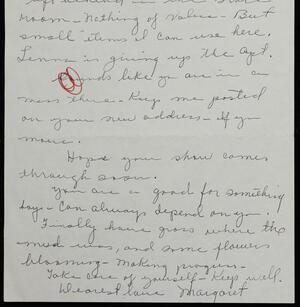 room - Nothing of Value - But
small items I can use here.
is giving up the apt.
like you are in a
mess there - Keep me posted
on your new address - if you
move.
Hope your show comes
through soon.
You are a good for something
boy - Can always depend on you.
Finally have grass where the
mud was, and some flowers
blooming - making progress -
Take care of yourself - Keep well.
Dearest love Margaret